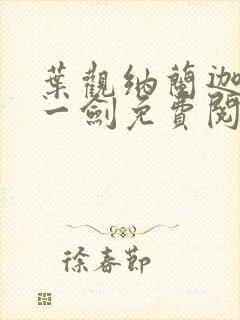 葉觀納蘭迦
一劍免費閱
徐春節